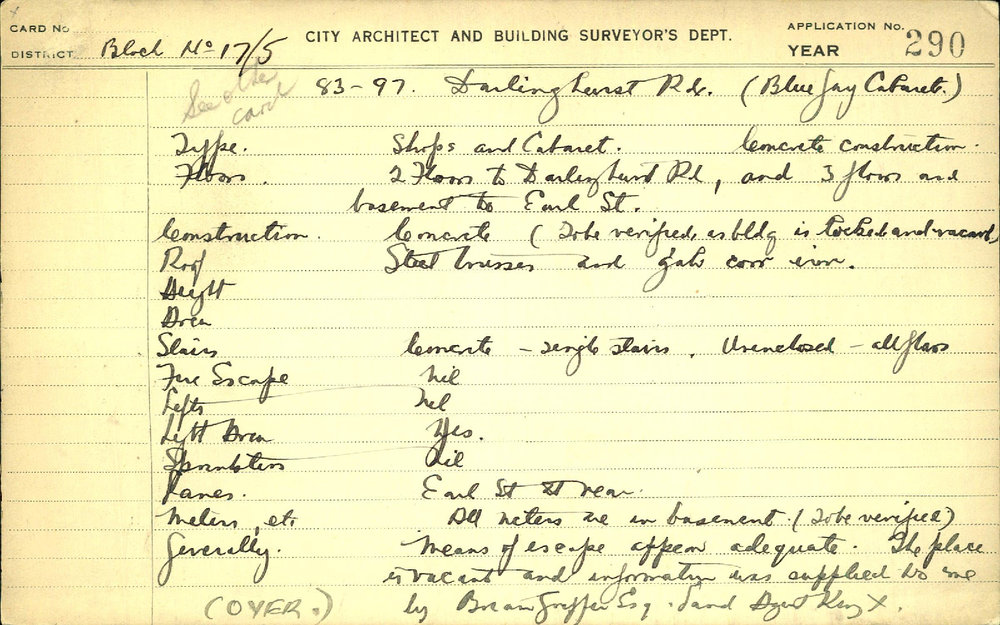 CARD No
CITY ARCHITECT AND BUILDING SURVEYOR'S DEPT.
APPLICATION No.
290
DISTRICT Block No 17/5
YEAR
See other card
83-97. Darlinghurst Rd. (Blue Jay Cabaret.)
Type. Shops and Cabaret. Concrete construction.
Floors. 2 Floors to Darlinghurst Rd, and 3 floors and
basement to Earl St.
Construction. Concrete (To be verified, as bldg is locked and vacant)
Roof Steel trusses and galv corr iron.
Height
Area
Stairs Concrete - single stairs. Unenclosed - all floors
Fire Escape Nil
Lifts Nil
Light Area Yes.
Sprinklers Nil
Lanes. Earl St at rear.
Meters, etc All meters are in basement. (To be verified)
Generally. Means of escape appear adequate. The place
is vacant and information was supplied to me
(OVER.) by Esq. Land Agent Kings X.